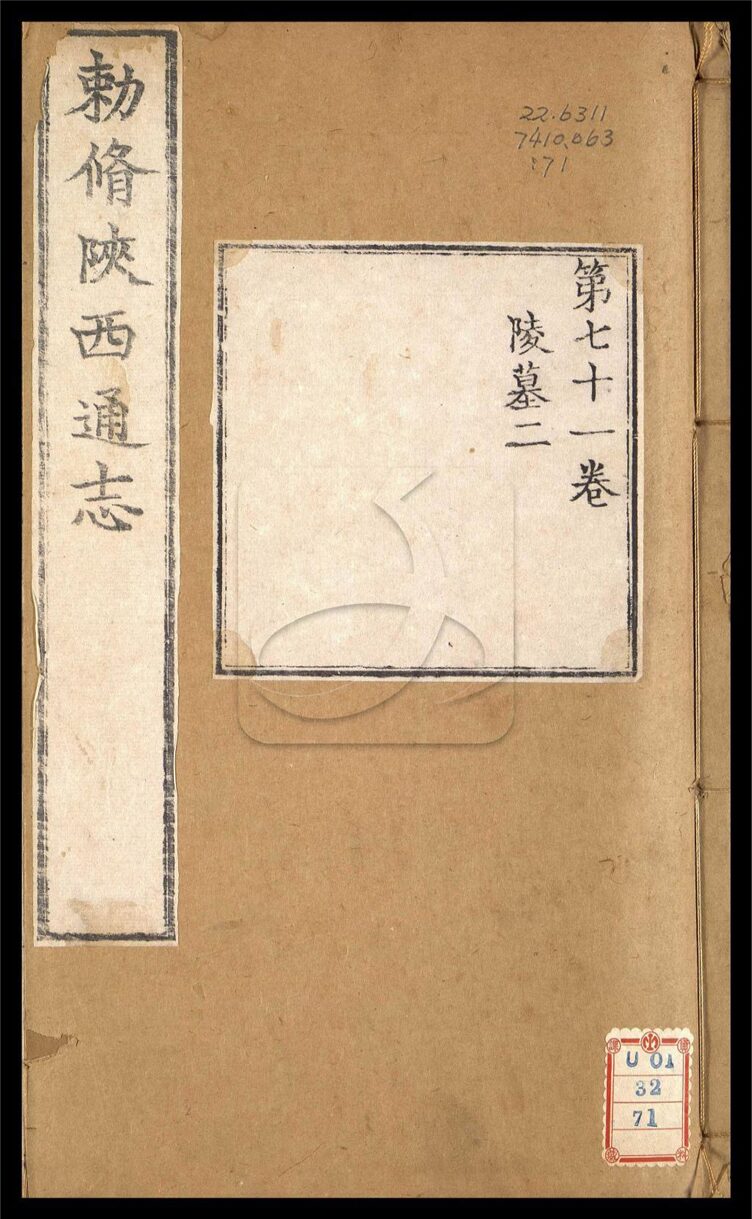 勅脩陝西通志
第七十一卷
陵墓二
22.6311
7410.063
:71
U 01
32
71